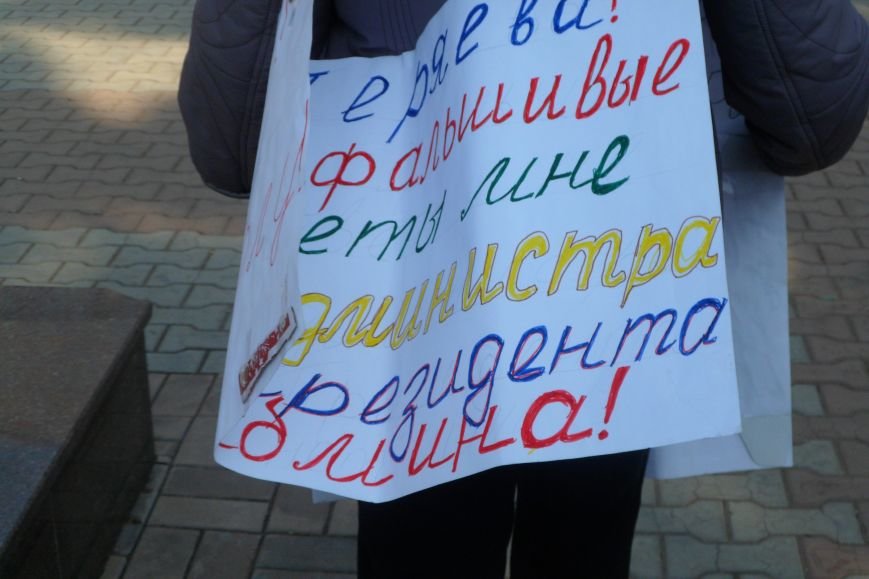 еряева!
фальшивые
еты мне
министра
резидента
мина!